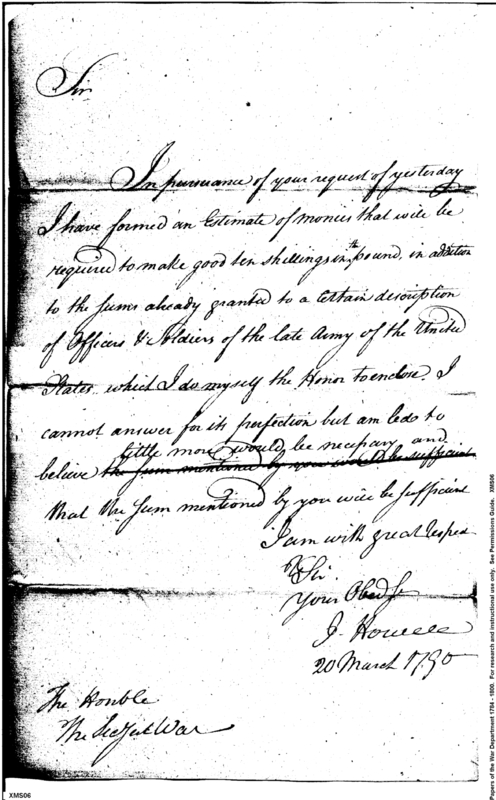 Sir
In pursuance of your request of yesterday
I have formed an Estimate of monies that will be
required to make good ten shillings in th pound, in addition
to the sums already granted to a certain description
of Officers & Soldiers of the late Army of the United
States which I do myself the Honor to enclose. I
cannot answer for its perfection but am led to
little more would be necessary and
believe the sum mentioned by you would be sufficient
that the sum mentioned by you will be sufficient
I am with great respect
Sir
Your Obed Se
J. Howell
20 March 1790
The Honble
The Secy at War
XMS06
Papers of the War Department 1784 - 1800. For research and instructional use only. See Permissions Guide. XMS06